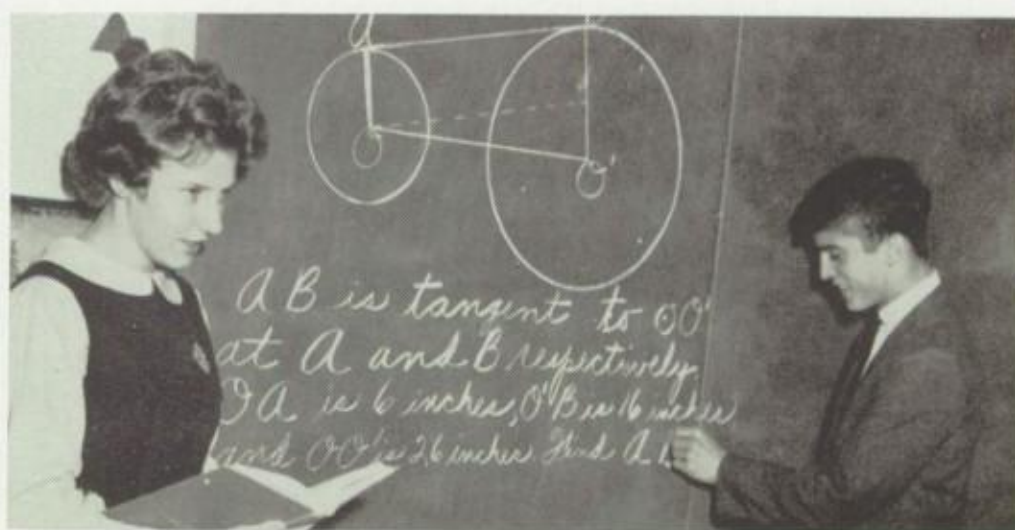 A
O'
A B is tangent to OO'
at A and B respectively
OA is 6 inches, O'B is 16 inches
and OO' is 26 inches. Find A